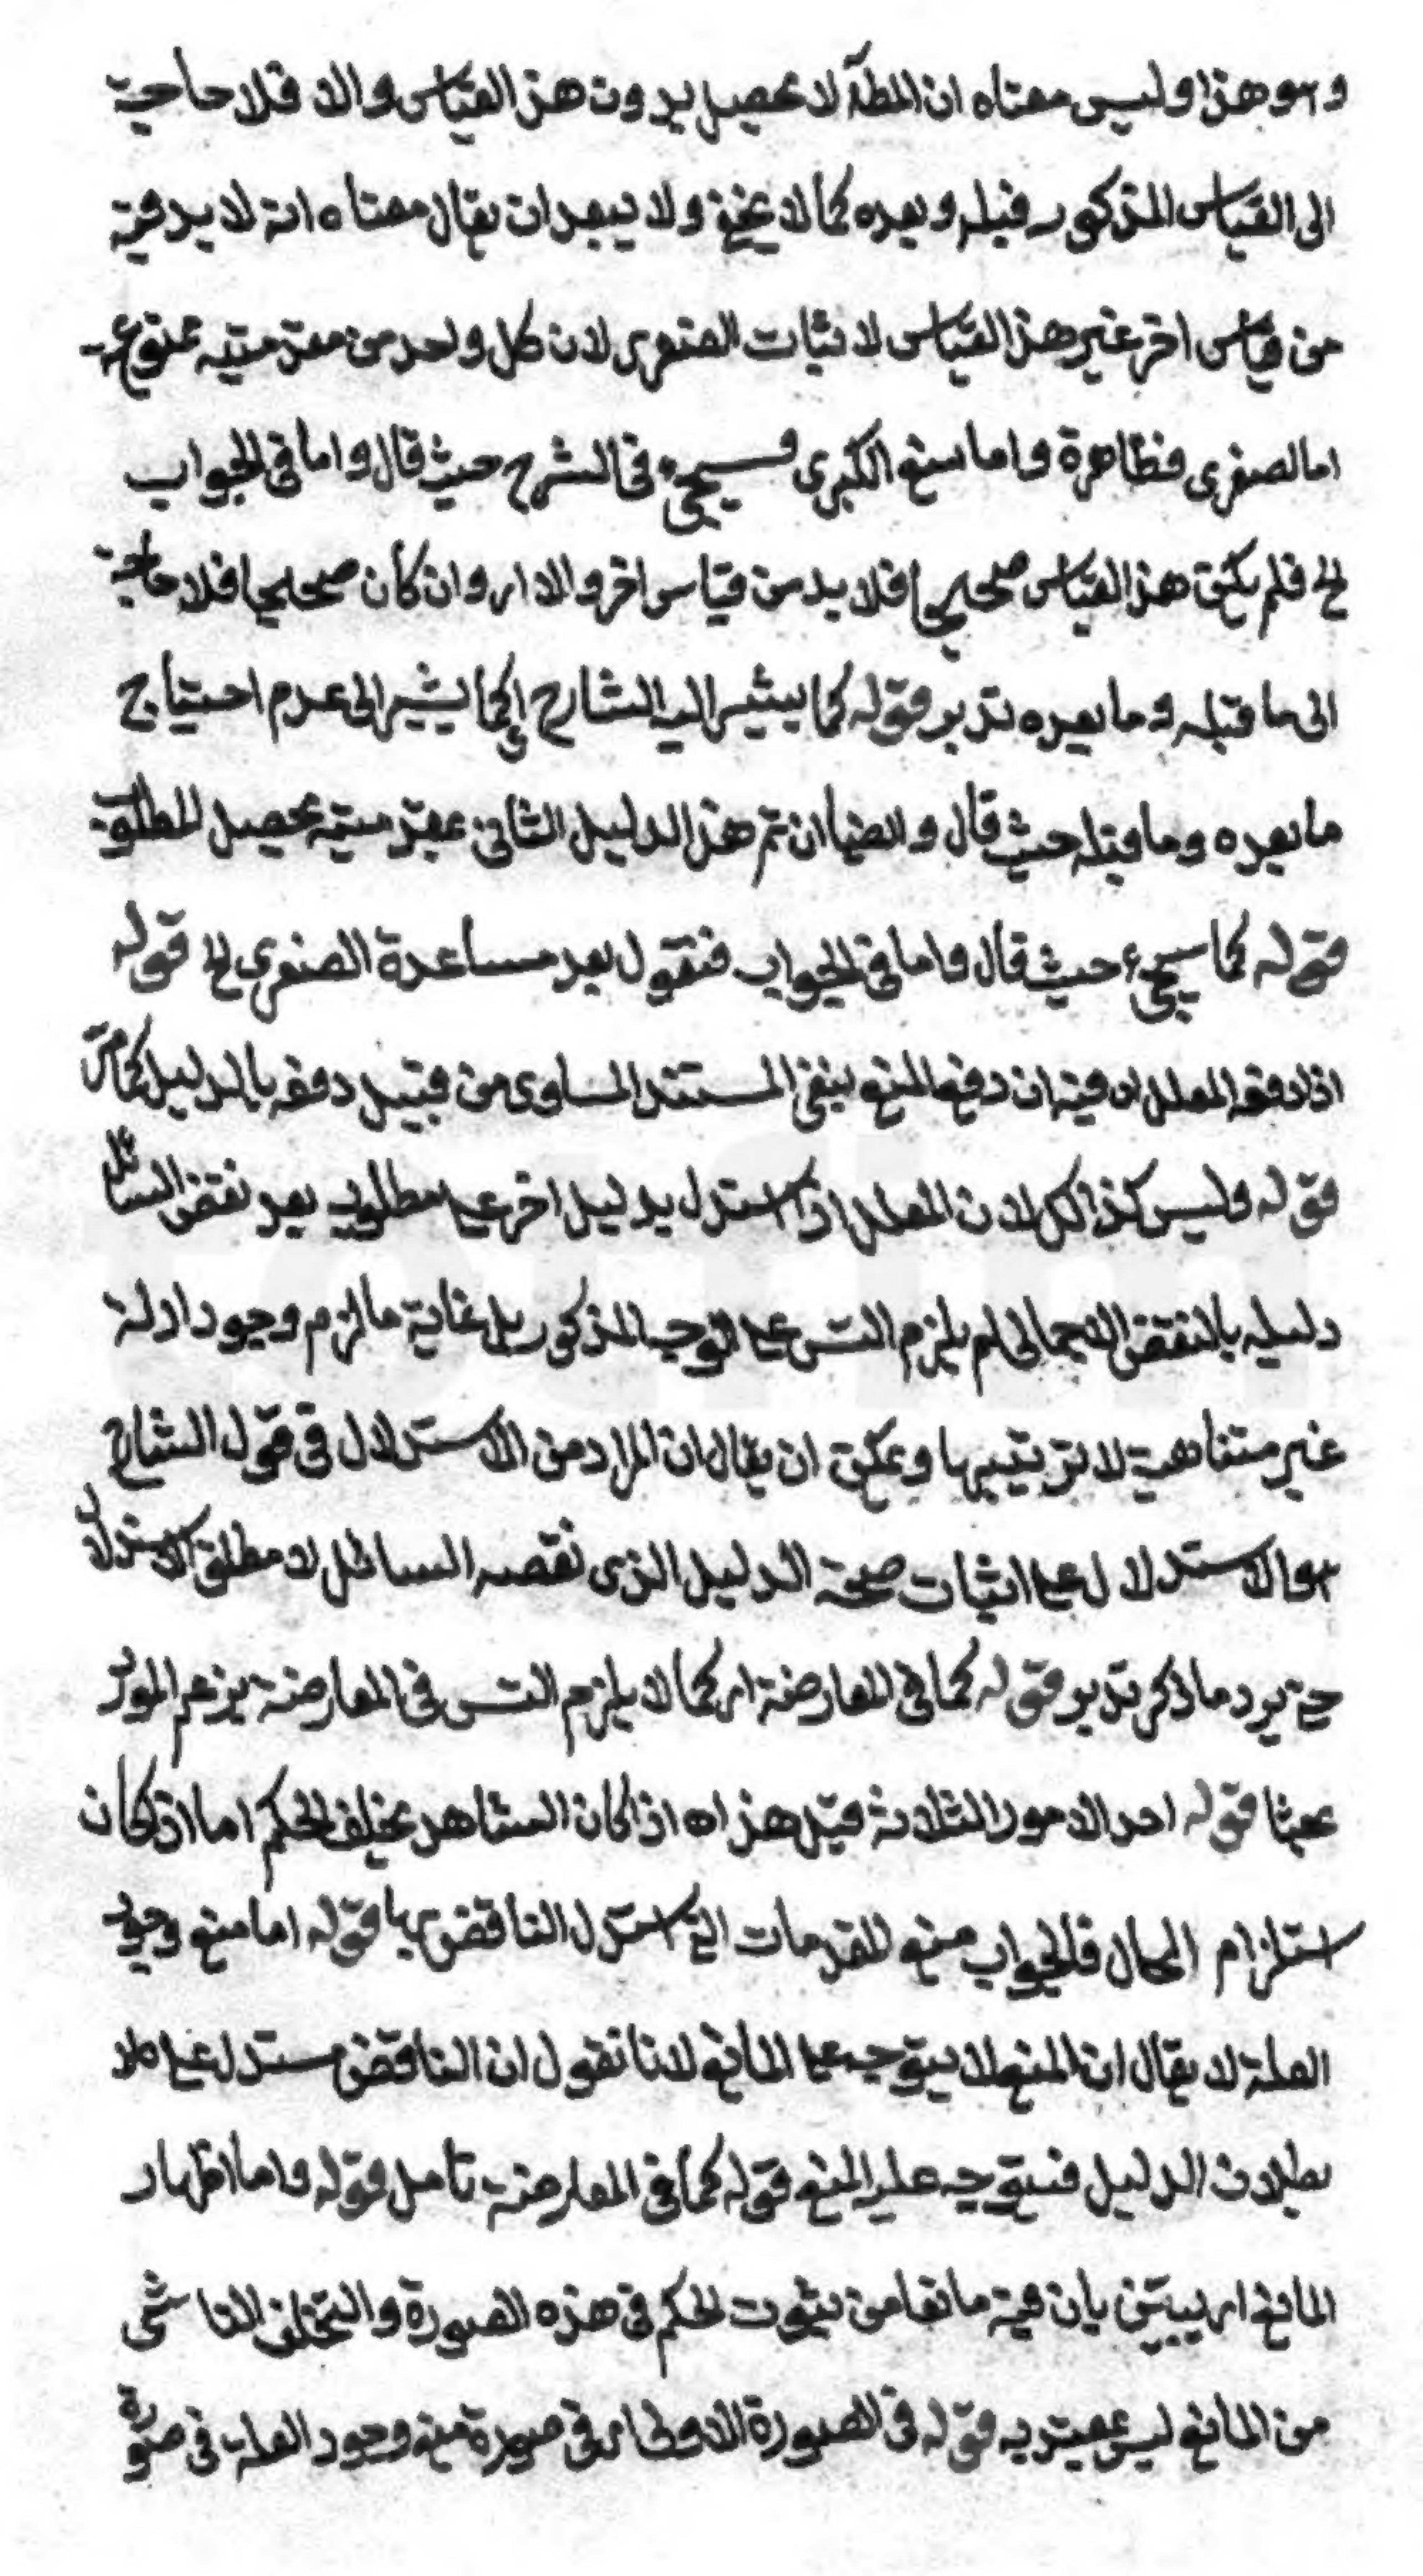 وهو هذا وليس معناه ان المط لا يحصل بدون هذا القياس والا فلا حاجة
الى القياس المذكور قبله وبعده كما لا يخفى ولا يبعد ان يقال معناه انه لا بد فيه
من قياس اخر غير هذا القياس لاثبات الصغرى لان كل واحد من مقدمتيه ممنوعة
اما الصغرى فظاهرة واما منع الكبرى فسيجيء في الشرح حيث قال واما في الجواب
الخ فلم يكن هذا القياس صحيحا فلا بد من قياس اخر والا اى وان كان صحيحا فلا حاجة
الى ما قبله وما بعده تدبر قوله كما يشير اليه الشارح اى كما يشير الى عدم احتياج
ما بعده وما قبله حيث قال وايضا ان تم هذا الدليل الثاني بمقدمتيه يحصل المطلوب
قوله كما سيجيء حيث قال واما في الجواب فنقول بعد مساعدة الصغرى الخ قوله
اذا دفعه المعلل اه فيه ان دفع المنع بنفي المستند المساوى من قبيل دفعه بالدليل كما مر
قوله وليس كذلك لان المعلل اذا استدل بدليل اخر على مطلوبه بعد نقض السائل
دليله بالنقض الاجمالى لم يلزم التس على الوجه المذكور بل غاية ما لزم وجود ادلة
غير متناهية لا ترتيبها ويمكن ان يقال ان المراد من الاستدلال في قول الشارح
هو الاستدلال على اثبات صحة الدليل الذى نقضه السائل لا مطلق الاستدلال
حتى يرد ما ذكر تدبر قوله كما في المعارضة اى كما لا يلزم التس في المعارضة يزعم المورد
بحثا قوله احد الامور الثلاثة قيل هذا اه اذا كان الشاهد تخلف الحكم اما اذا كان
استلزام المحال فالجواب منع المقدمات التى استدل الناقض بها قوله اما منع وجود
العلة لا يقال ان المنع لا يتوجه على المانع لانا نقول ان الناقض مستدل على
بطلان الدليل فيتوجه عليه المنع قوله كما في المعارضة تامل قوله واما اظهار
المانع اى يبين بان فيه مانعا من ثبوت الحكم في هذه الصورة والتخلف الناشى
من المانع ليس بمعتد به قوله في الصورة الاولى اى في صورة منع وجود العلة في صورة